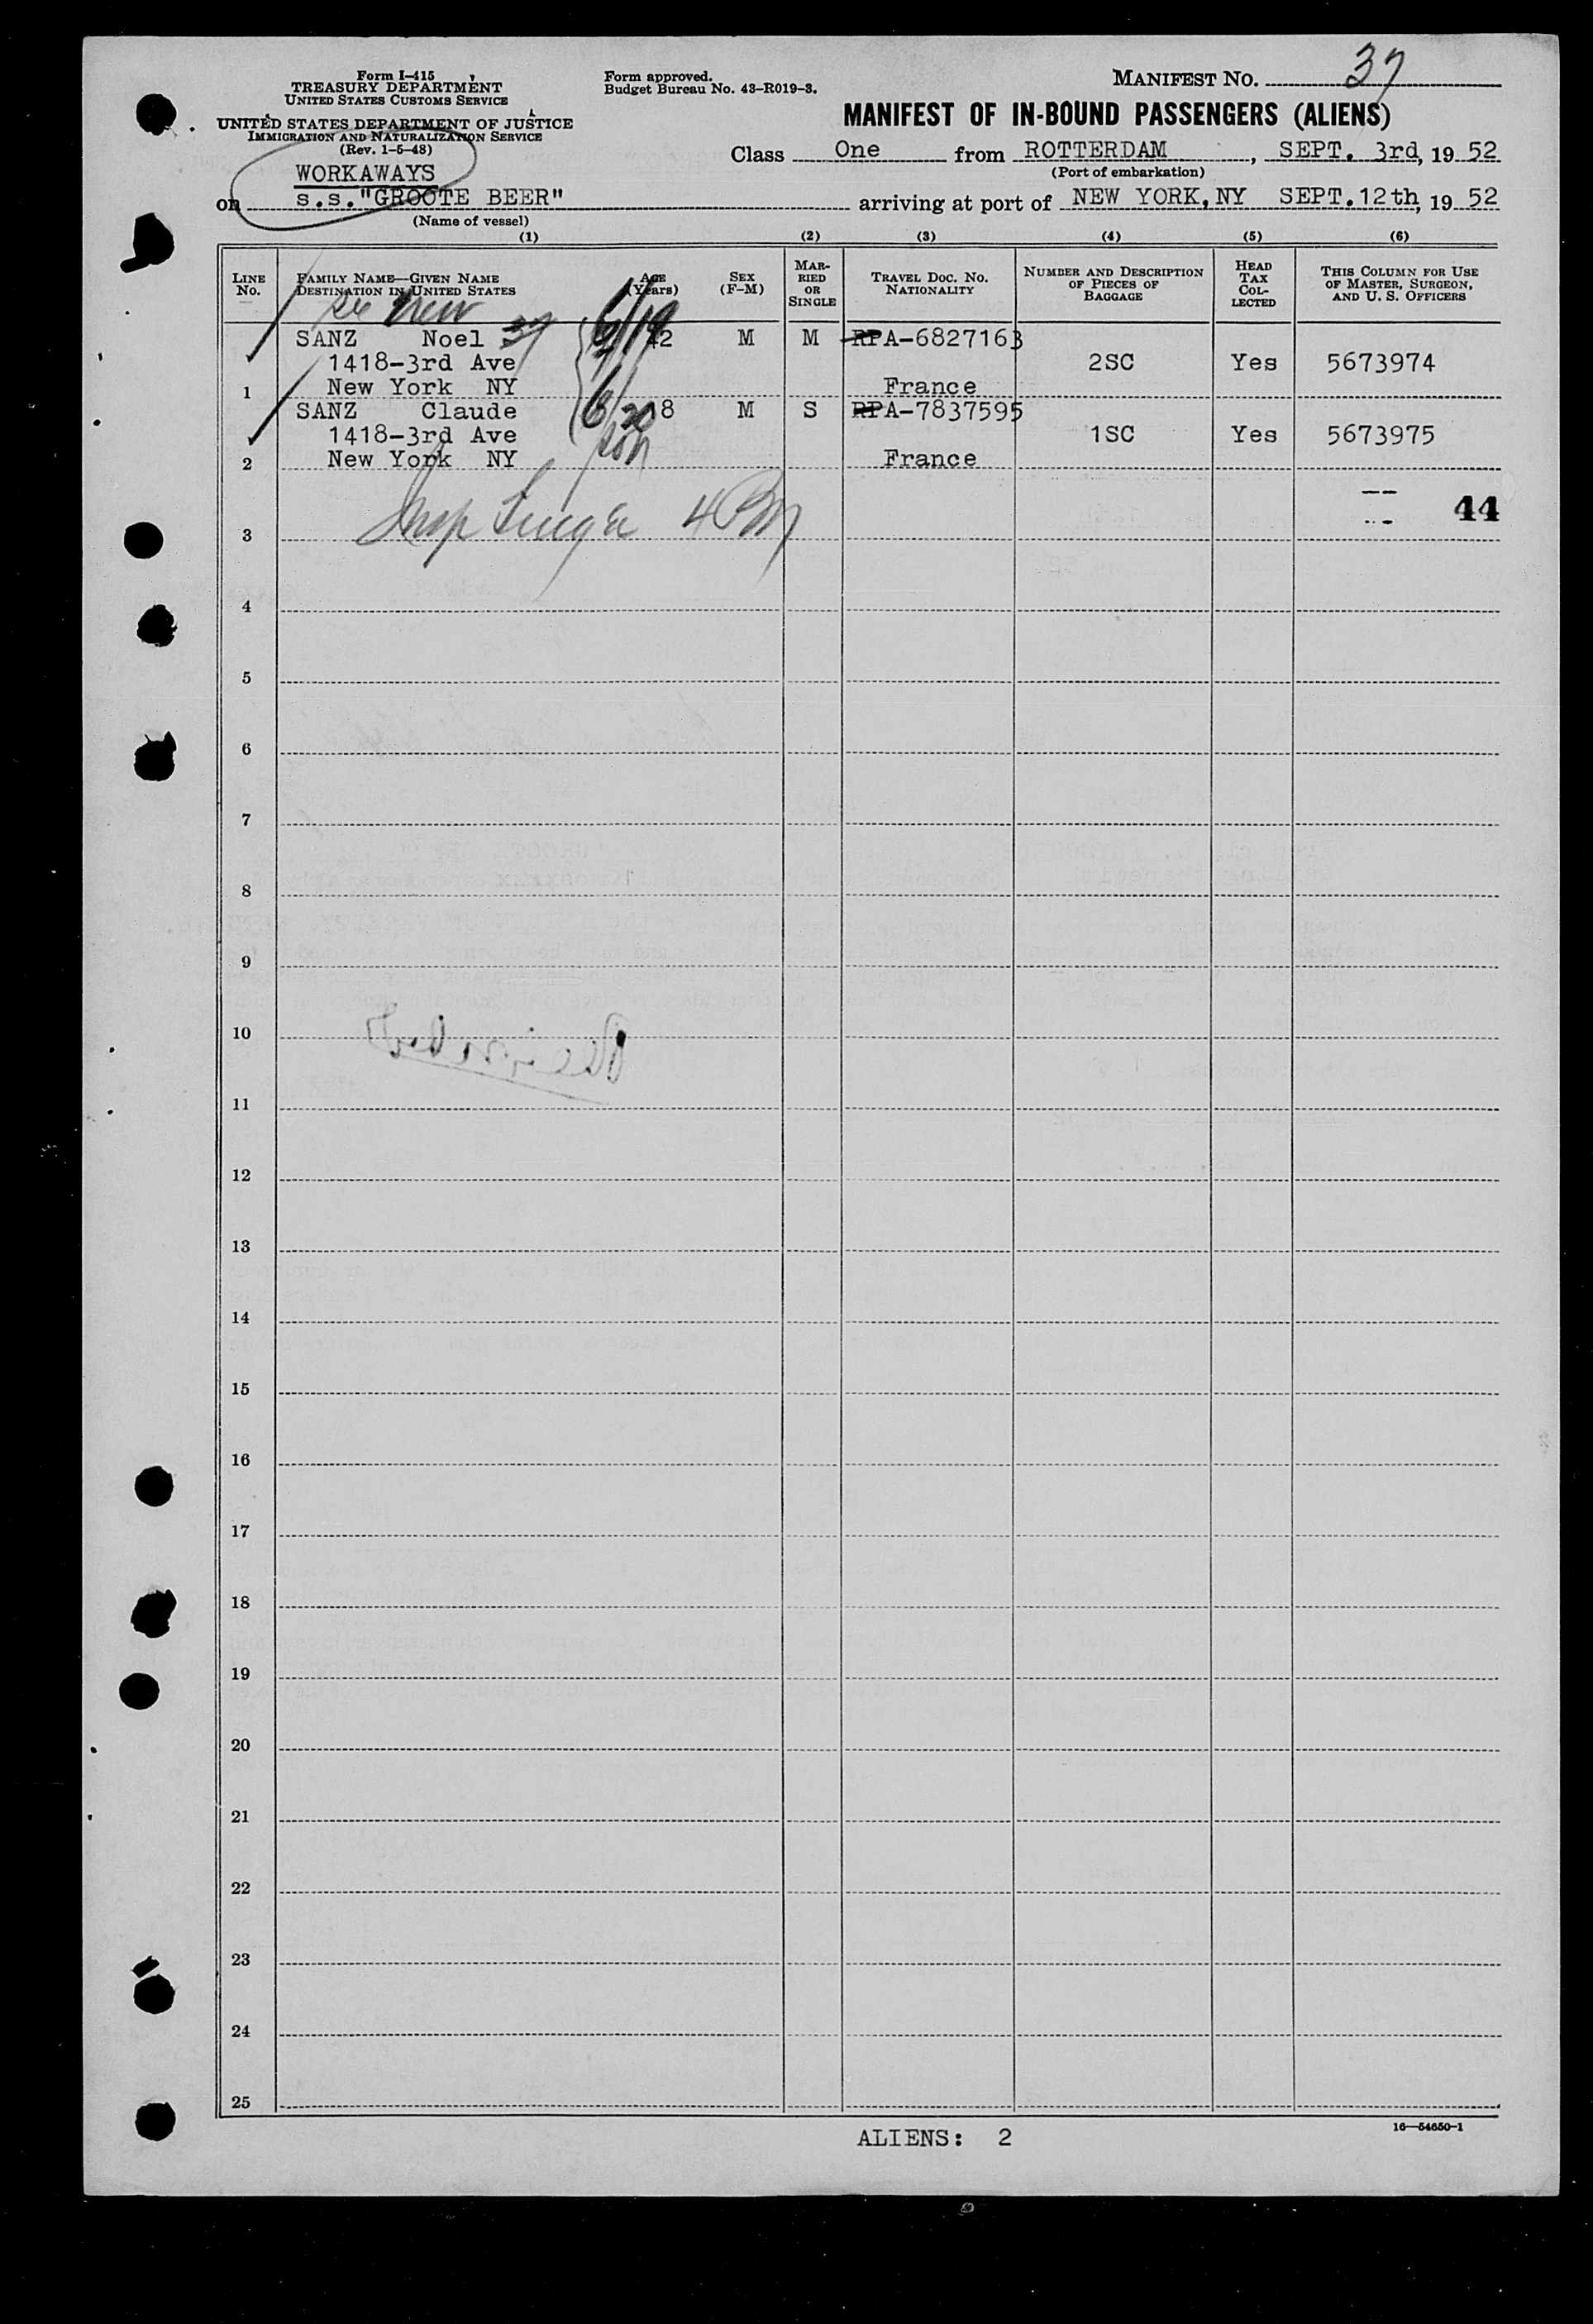 Form I-415
TREASURY DEPARTMENT
UNITED STATES CUSTOMS SERVICE
UNITED STATES DEPARTMENT OF JUSTICE
IMMIGRATION AND NATURALIZATION SERVICE
(Rev. 1-5-48)
Form approved.
Budget Bureau No. 43-R019-3.
MANIFEST NO. 37
MANIFEST OF IN-BOUND PASSENGERS (ALIENS)
Class One from ROTTERDAM, SEPT. 3rd, 19 52
(Port of embarkation)
WORKAWAYS
on s.s."GROOTE BEER" arriving at port of NEW YORK, NY SEPT.12th, 19 52
(Name of vessel)
(1) (2) (3) (4) (5) (6)
LINE NO.
FAMILY NAME—GIVEN NAME
DESTINATION IN UNITED STATES
AGE (Years)
SEX (F-M)
MARRIED OR SINGLE
TRAVEL DOC. NO.
NATIONALITY
NUMBER AND DESCRIPTION OF PIECES OF BAGGAGE
HEAD TAX COLLECTED
THIS COLUMN FOR USE OF MASTER, SURGEON, AND U. S. OFFICERS
new
SANZ Noel 37 42 M M RPA-6827163
1418-3rd Ave 2SC Yes 5673974
1 New York NY France
SANZ Claude 18 M S RPA-7837595
1418-3rd Ave 1SC Yes 5673975
2 New York NY son France
44
3 Insp 4 PM
4
5
6
7
8
9
10
11
12
13
14
15
16
17
18
19
20
21
22
23
24
25
ALIENS: 2
16—54650-1